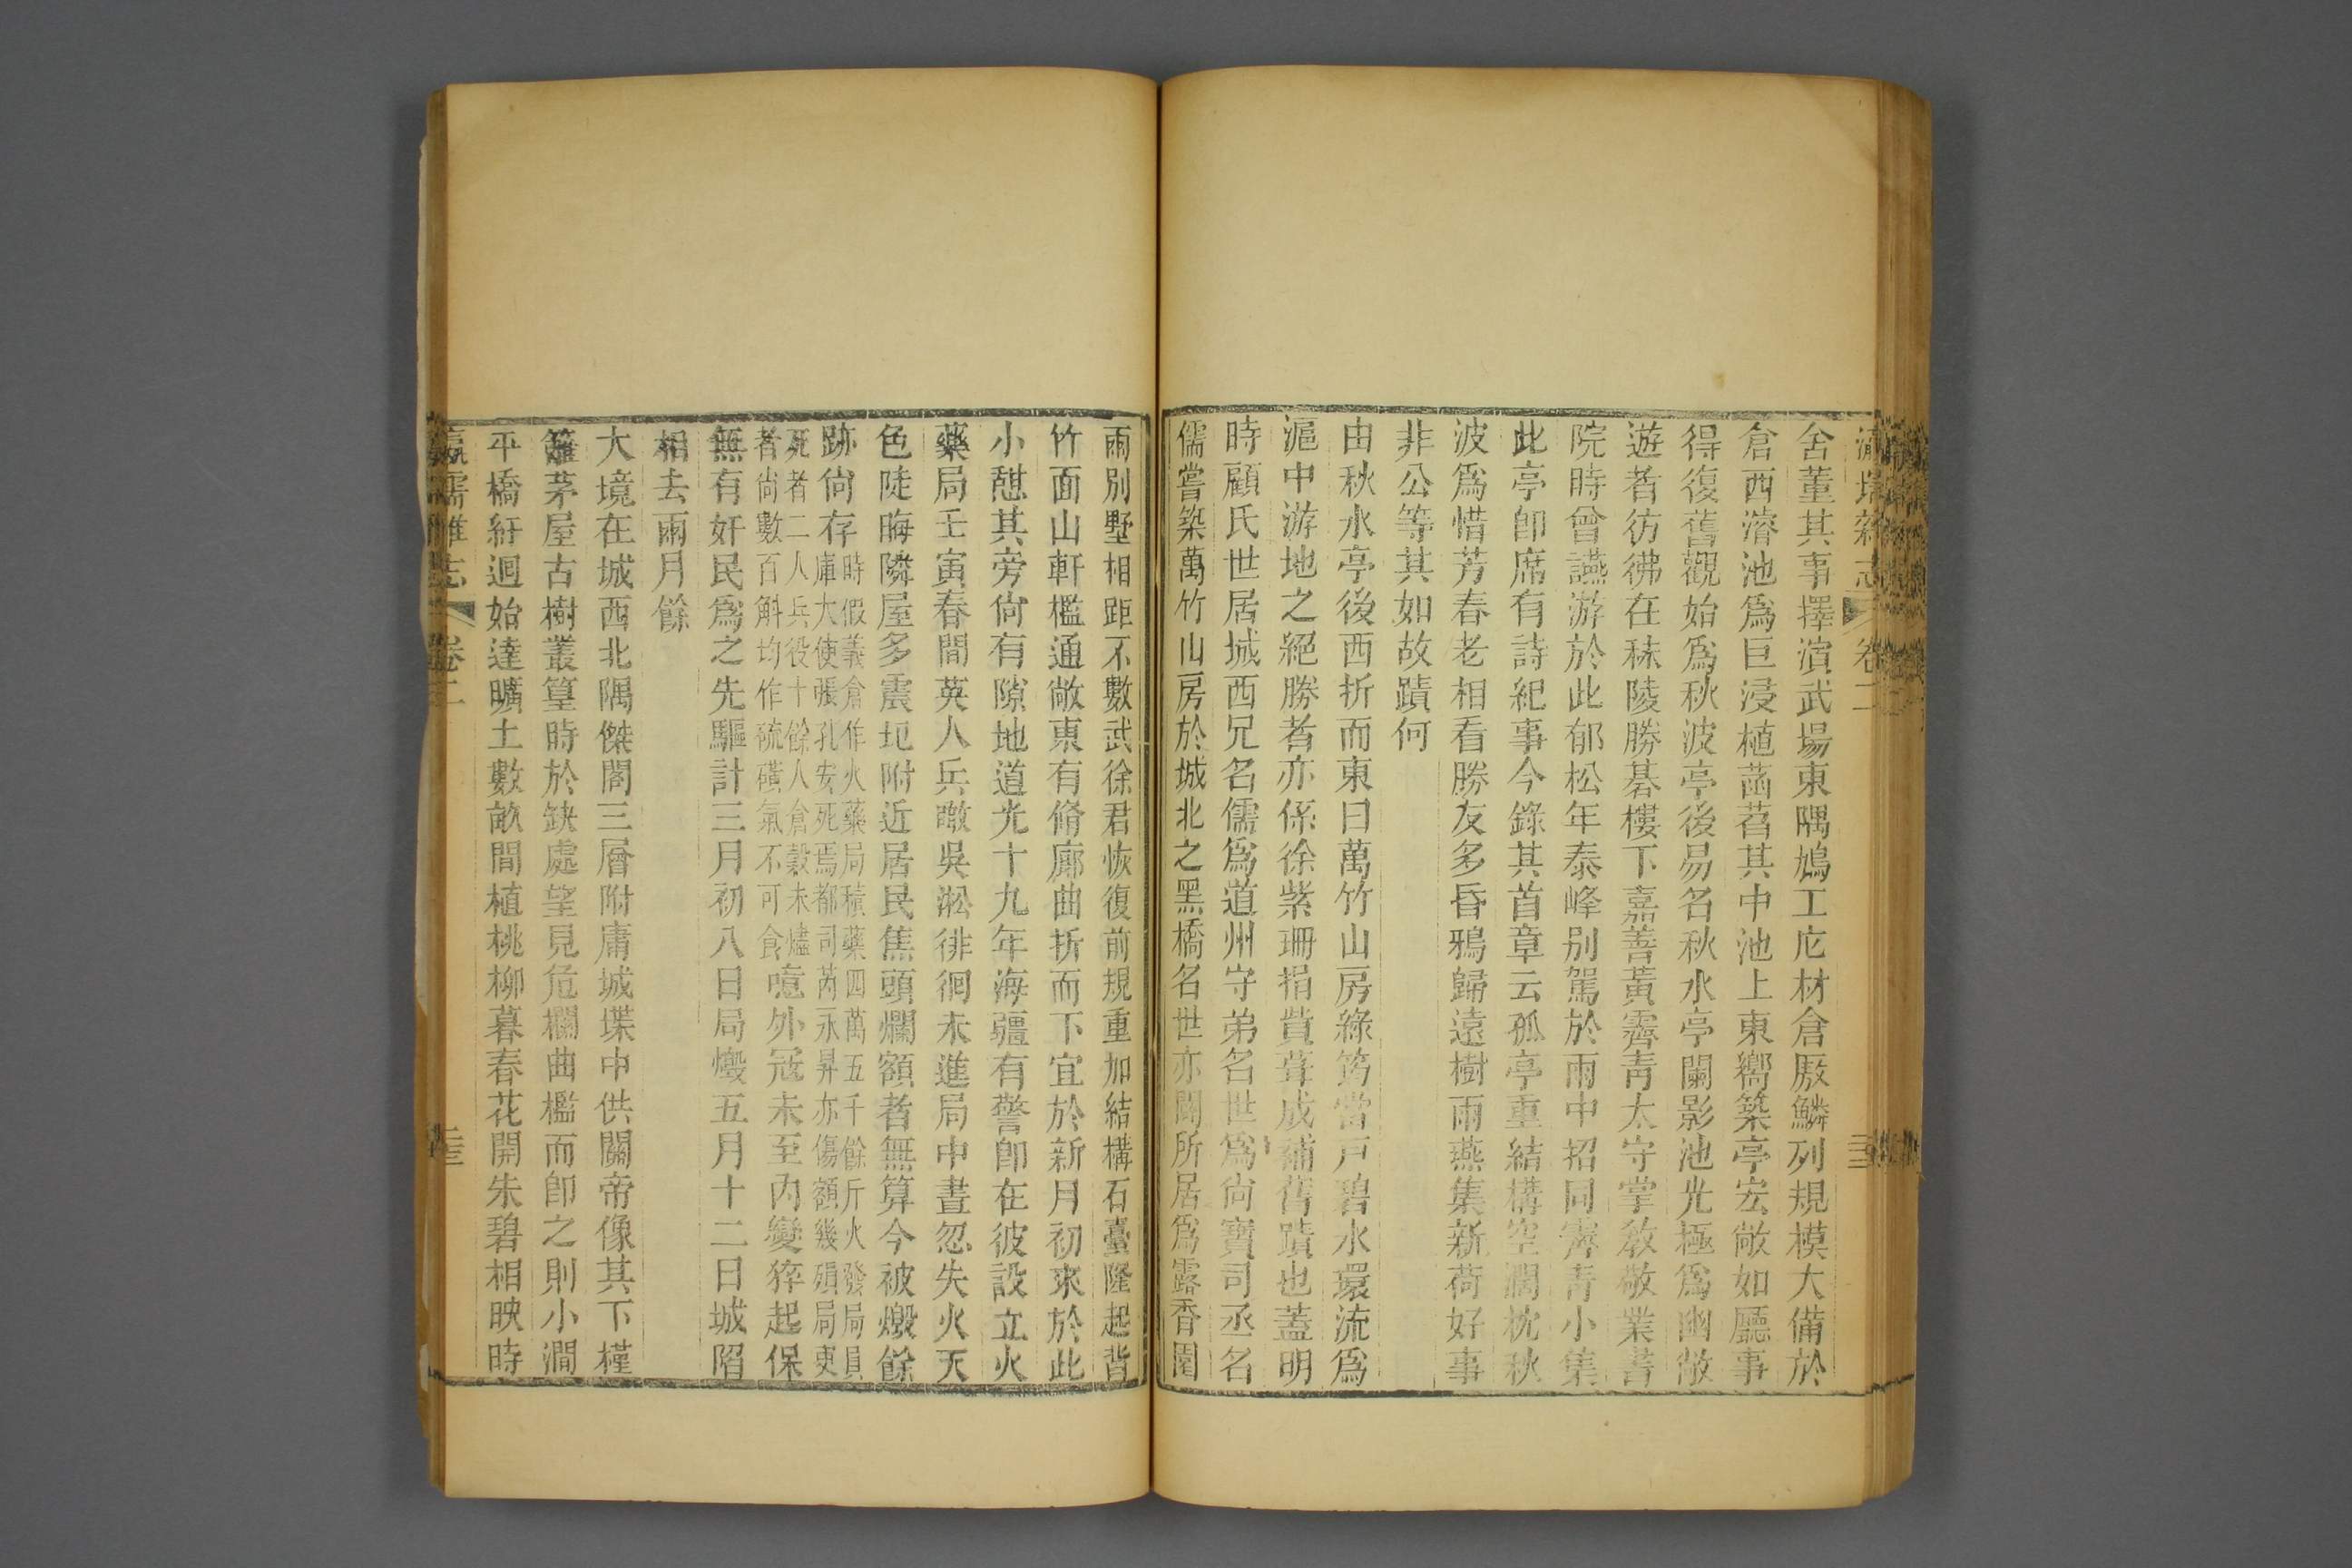 瀛壖雜志 卷二
舍董其事擇演武場東隅鳩工庀材倉厫鱗列規模大備於
倉西濬池為巨浸植菡萏其中池上東嚮築亭宏敞如廳事
得復舊觀始為秋波亭後易名秋水亭闌影池光極為幽敞
遊者彷彿在秣陵勝棊樓下嘉善黃霽青太守掌教敬業書
院時曾讌游於此郁松年泰峰别駕於雨中招同霽青小集
此亭卽席有詩紀事今錄其首章云孤亭重結構空濶枕秋
波為惜芳春老相看勝友多昏鴉歸遠樹雨燕集新荷好事
非公等其如故蹟何
由秋水亭後西折而東曰萬竹山房綠筠當戸碧水環流為
滬中游地之絕勝者亦係徐紫珊捐貲葺成補舊蹟也蓋明
時顧氏世居城西兄名儒為道州守弟名世為尙寶司丞名
儒嘗築萬竹山房於城北之黑橋名世亦闢所居為露香園
兩別墅相距不數武徐君恢復前規重加結構石臺隆起背
竹面山軒檻通敞東有脩廊曲折而下宜於新月初來於此
小憇其旁尙有隙地道光十九年海疆有警卽在彼設立火
藥局壬寅春間英人兵艦吳淞徘徊未進局中晝忽失火天
色陡晦隣屋多震圮附近居民焦頭爛額者無算今被燬餘
跡尙存
時假義倉作火藥局積藥四萬五千餘斤火發局員
庫大使張孔安死焉都司芮永昇亦傷額幾殞局吏
死者二人兵役十餘人倉穀未燼
者尙數百斛均作硫磺氣不可食
噫外冦未至內變猝起保
無有奸民為之先驅計三月初八日局燬五月十二日城陷
相去兩月餘
大境在城西北隅傑閣三層附庸城堞中供關帝像其下槿
籬茅屋古樹叢篁時於缺處望見危欄曲檻而卽之則小澗
平橋紆迴始達曠土數畝間植桃柳暮春花開朱碧相映時
瀛壖雜志 卷二